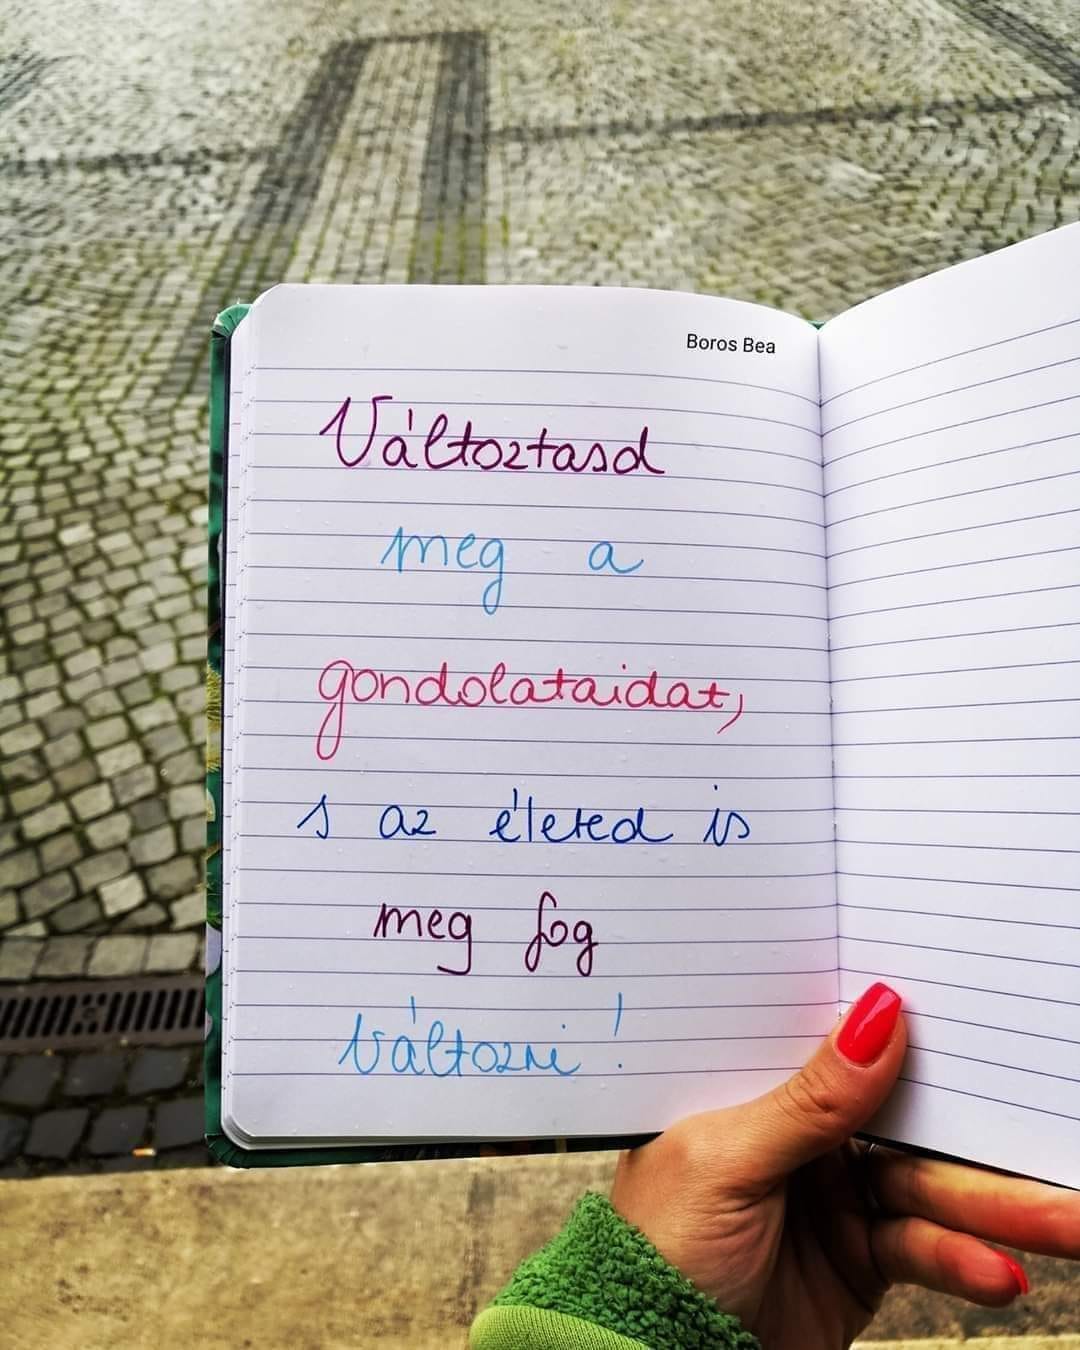 Boros Bea
Változtasd
meg a
gondolataidat,
s az életed is
meg fog
változni!